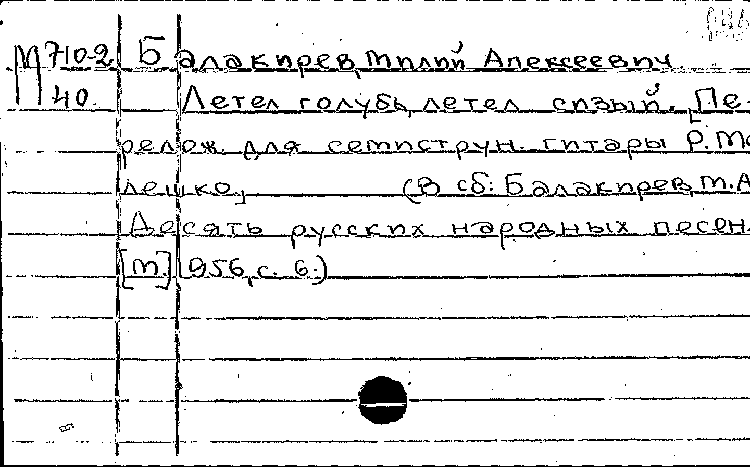 М 710-2 Балакирев, Милий Алексеевич
40 Летел голубь, летел сизый. Пе-
релож. для семиструн. гитары Р. Ме
лешко, (В сб: Балакирев, М.А
Десять русских народных песен.
[М.] 1956, с. 6.)